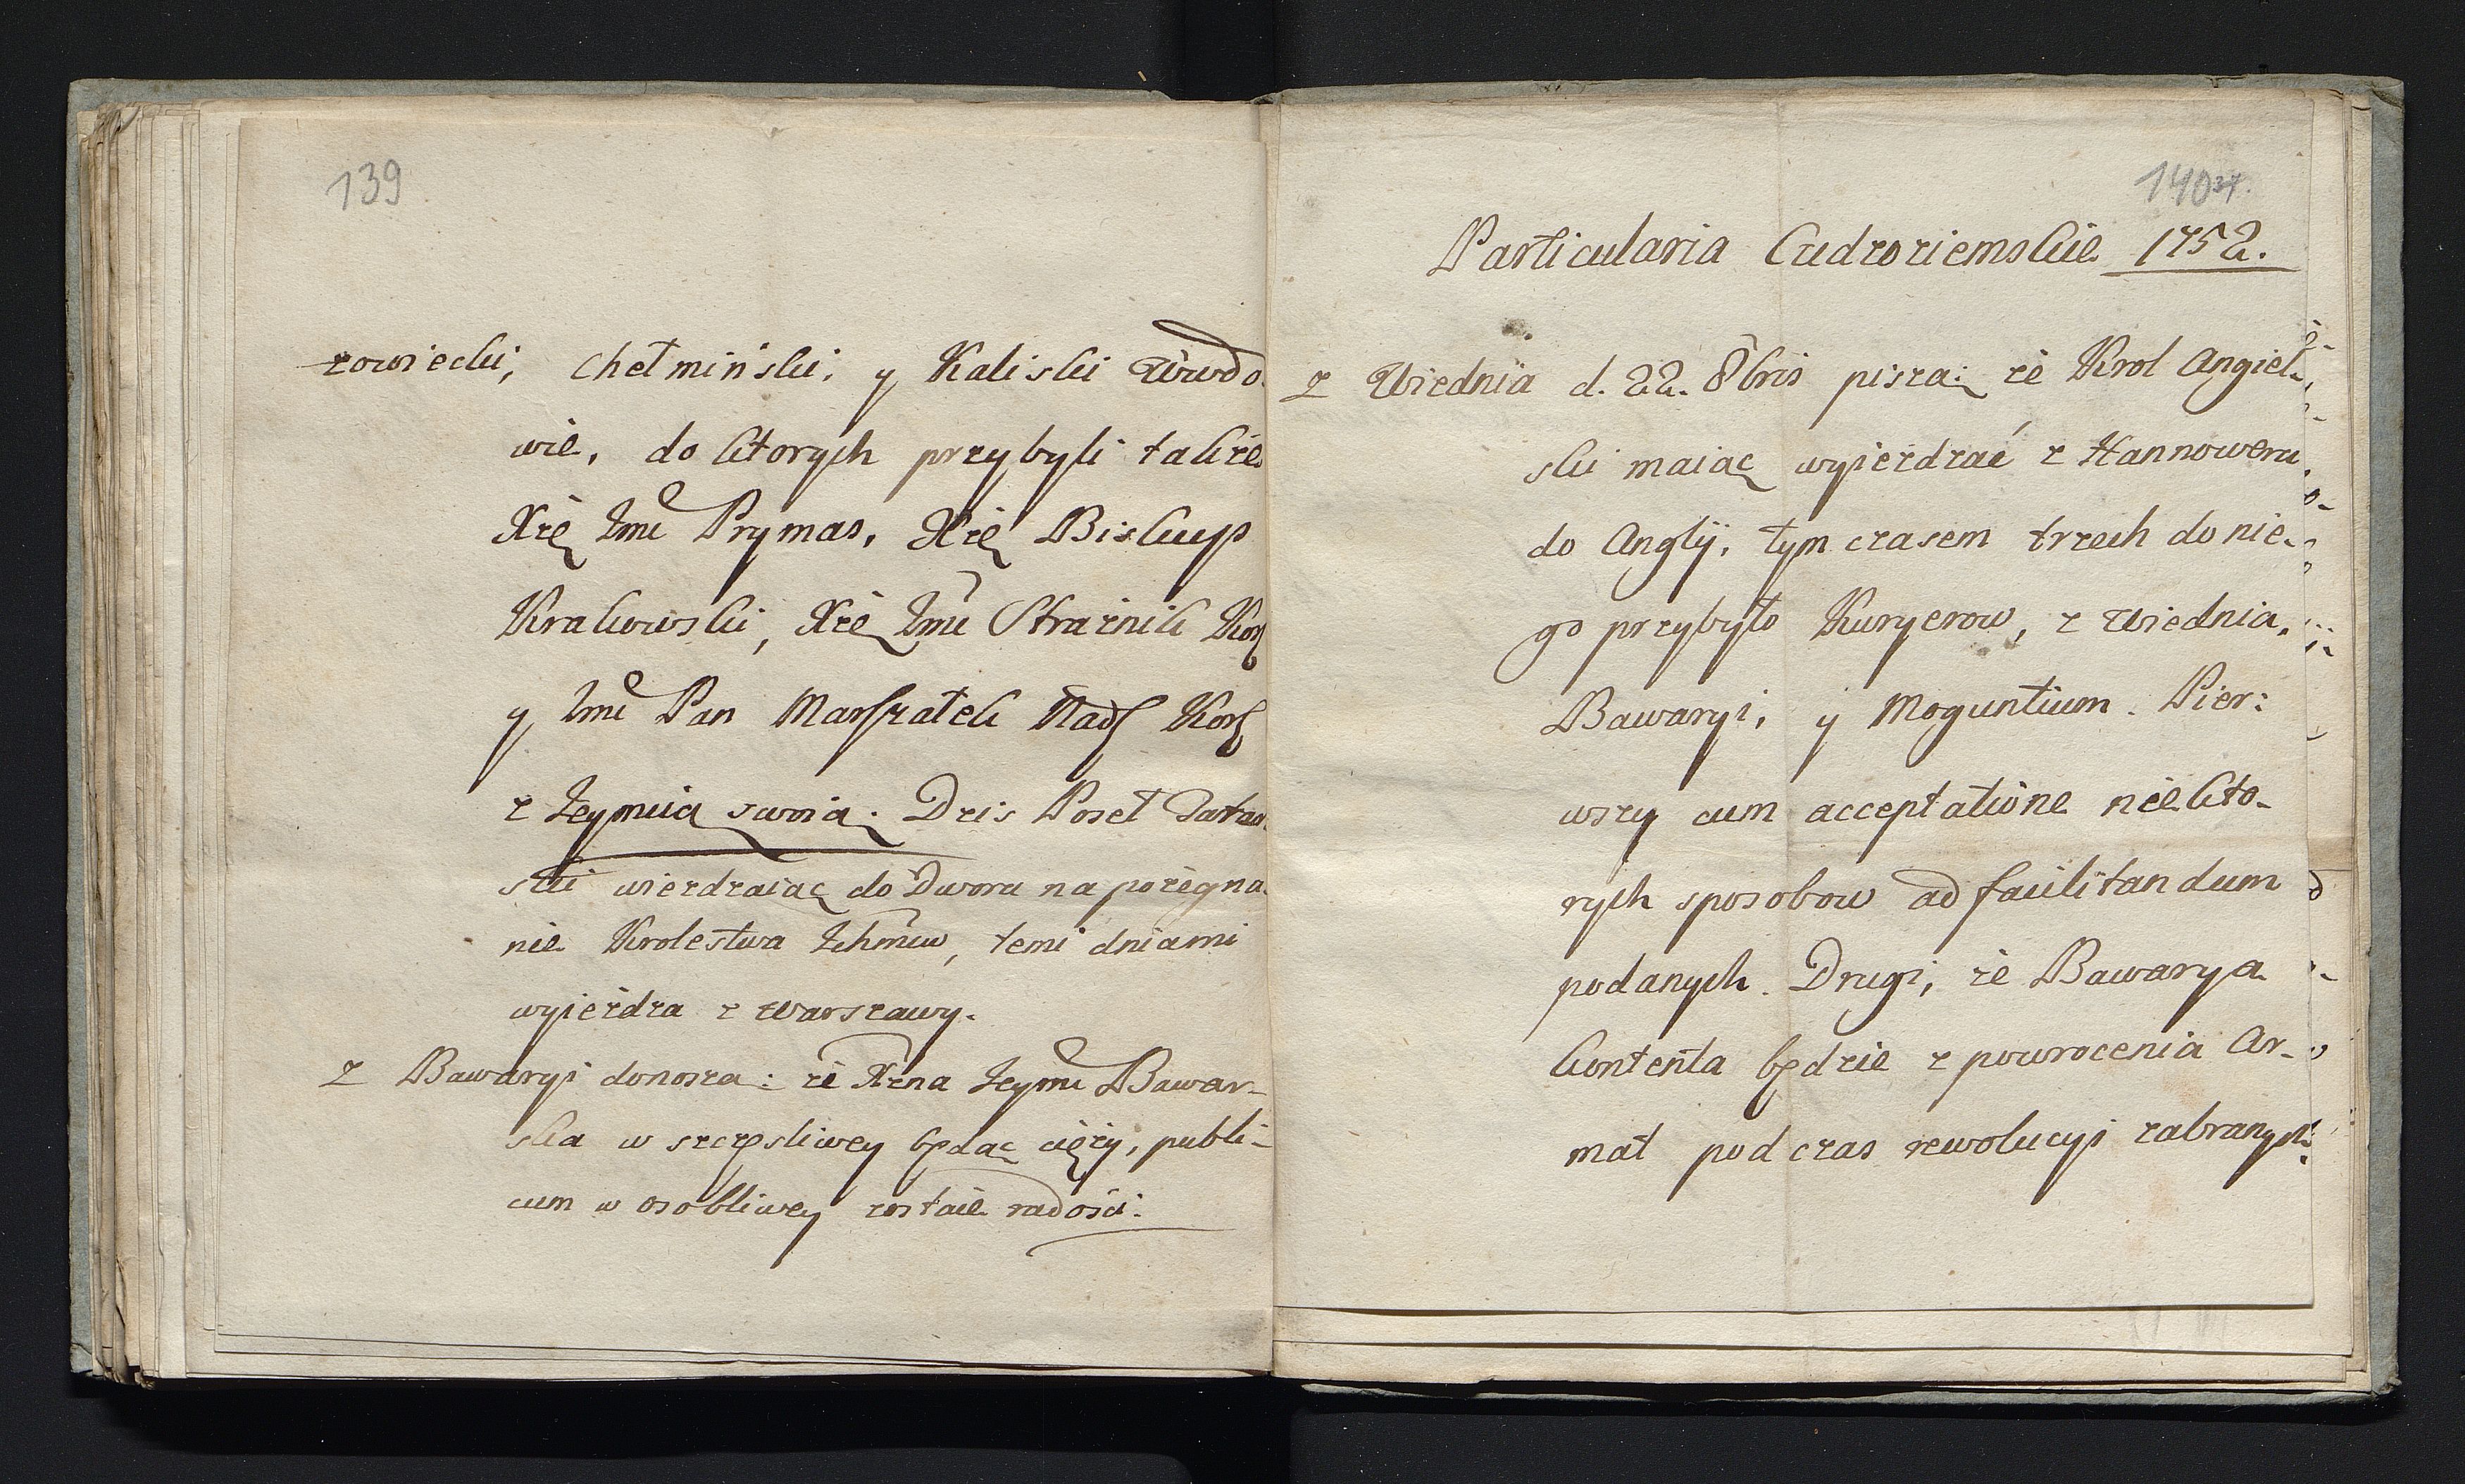 139
zowiecki, Chełmiński, y Kaliski Wwdo
wie, do ktorych przybyli także
Xżę Jmć Prymas, Xżę Biskup
Krakowski, Xżę Jmć Strażnik Kor
y Jmć Pan Marszałek Nad Kor
z Jeymcią swoią. Dziś Poseł Tatar
ski wieżdzaiąc do Dworu na pożegna
nie Krolestwa Ichmciw, temi dniami
wyieżdza z Warszawy.
Z Bawaryi donoszą: że Xżna Jeymć Bawar-
ska w szczęśliwey będąc cięży, publi-
cum w osobliwey zostaie radości.
140 34.
Particularia Cudzoziemskie 1752.
Z Wiednia d. 22. 8bris piszą: że Krol Angiel-
ski maiąc wyieżdzać z Hannoweru
do Anglij, tym czasem trzech do nie-
go przybyło Kuryerow, z Wiednia,
Bawaryi, y Moguntium. Pier:
wszy cum acceptatione niekto-
rych sposobow ad facilitandum
podanych. Drugi, że Bawarya
kontenta będzie z powrocenia Ar-
mat pod czas rewolucyi zabranych: